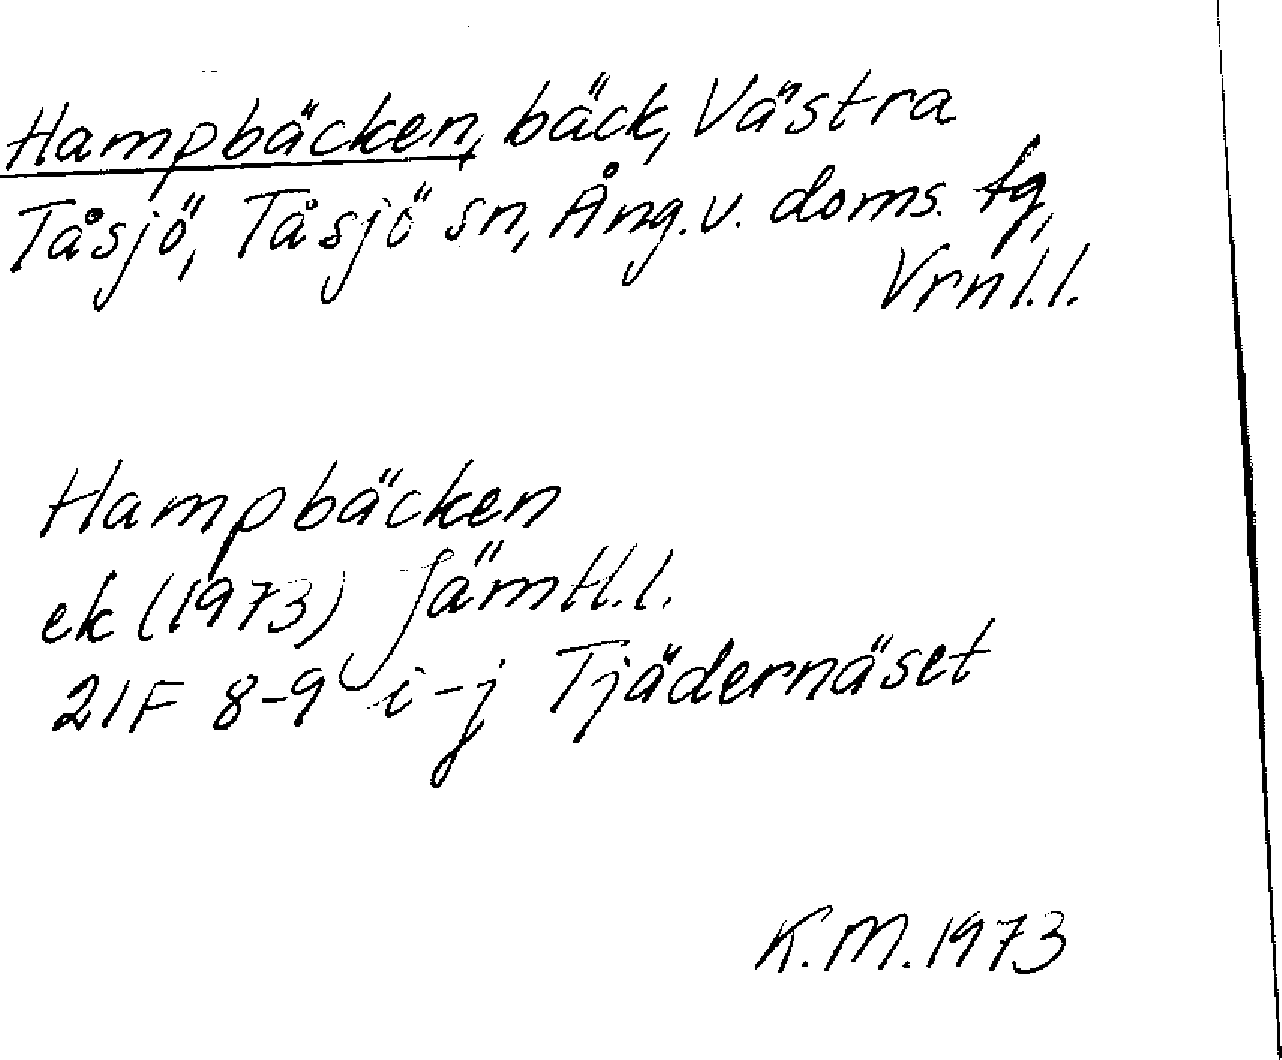 Hampbäcken, bäck, Västra
Tåsjö, Tåsjö sn, Ång. v. doms. tg,
Vrnl.l.
Hampbäcken
ek (1973) Jämtl.l.
21F 8-9 i-j Tjädernäset
K.M. 1973